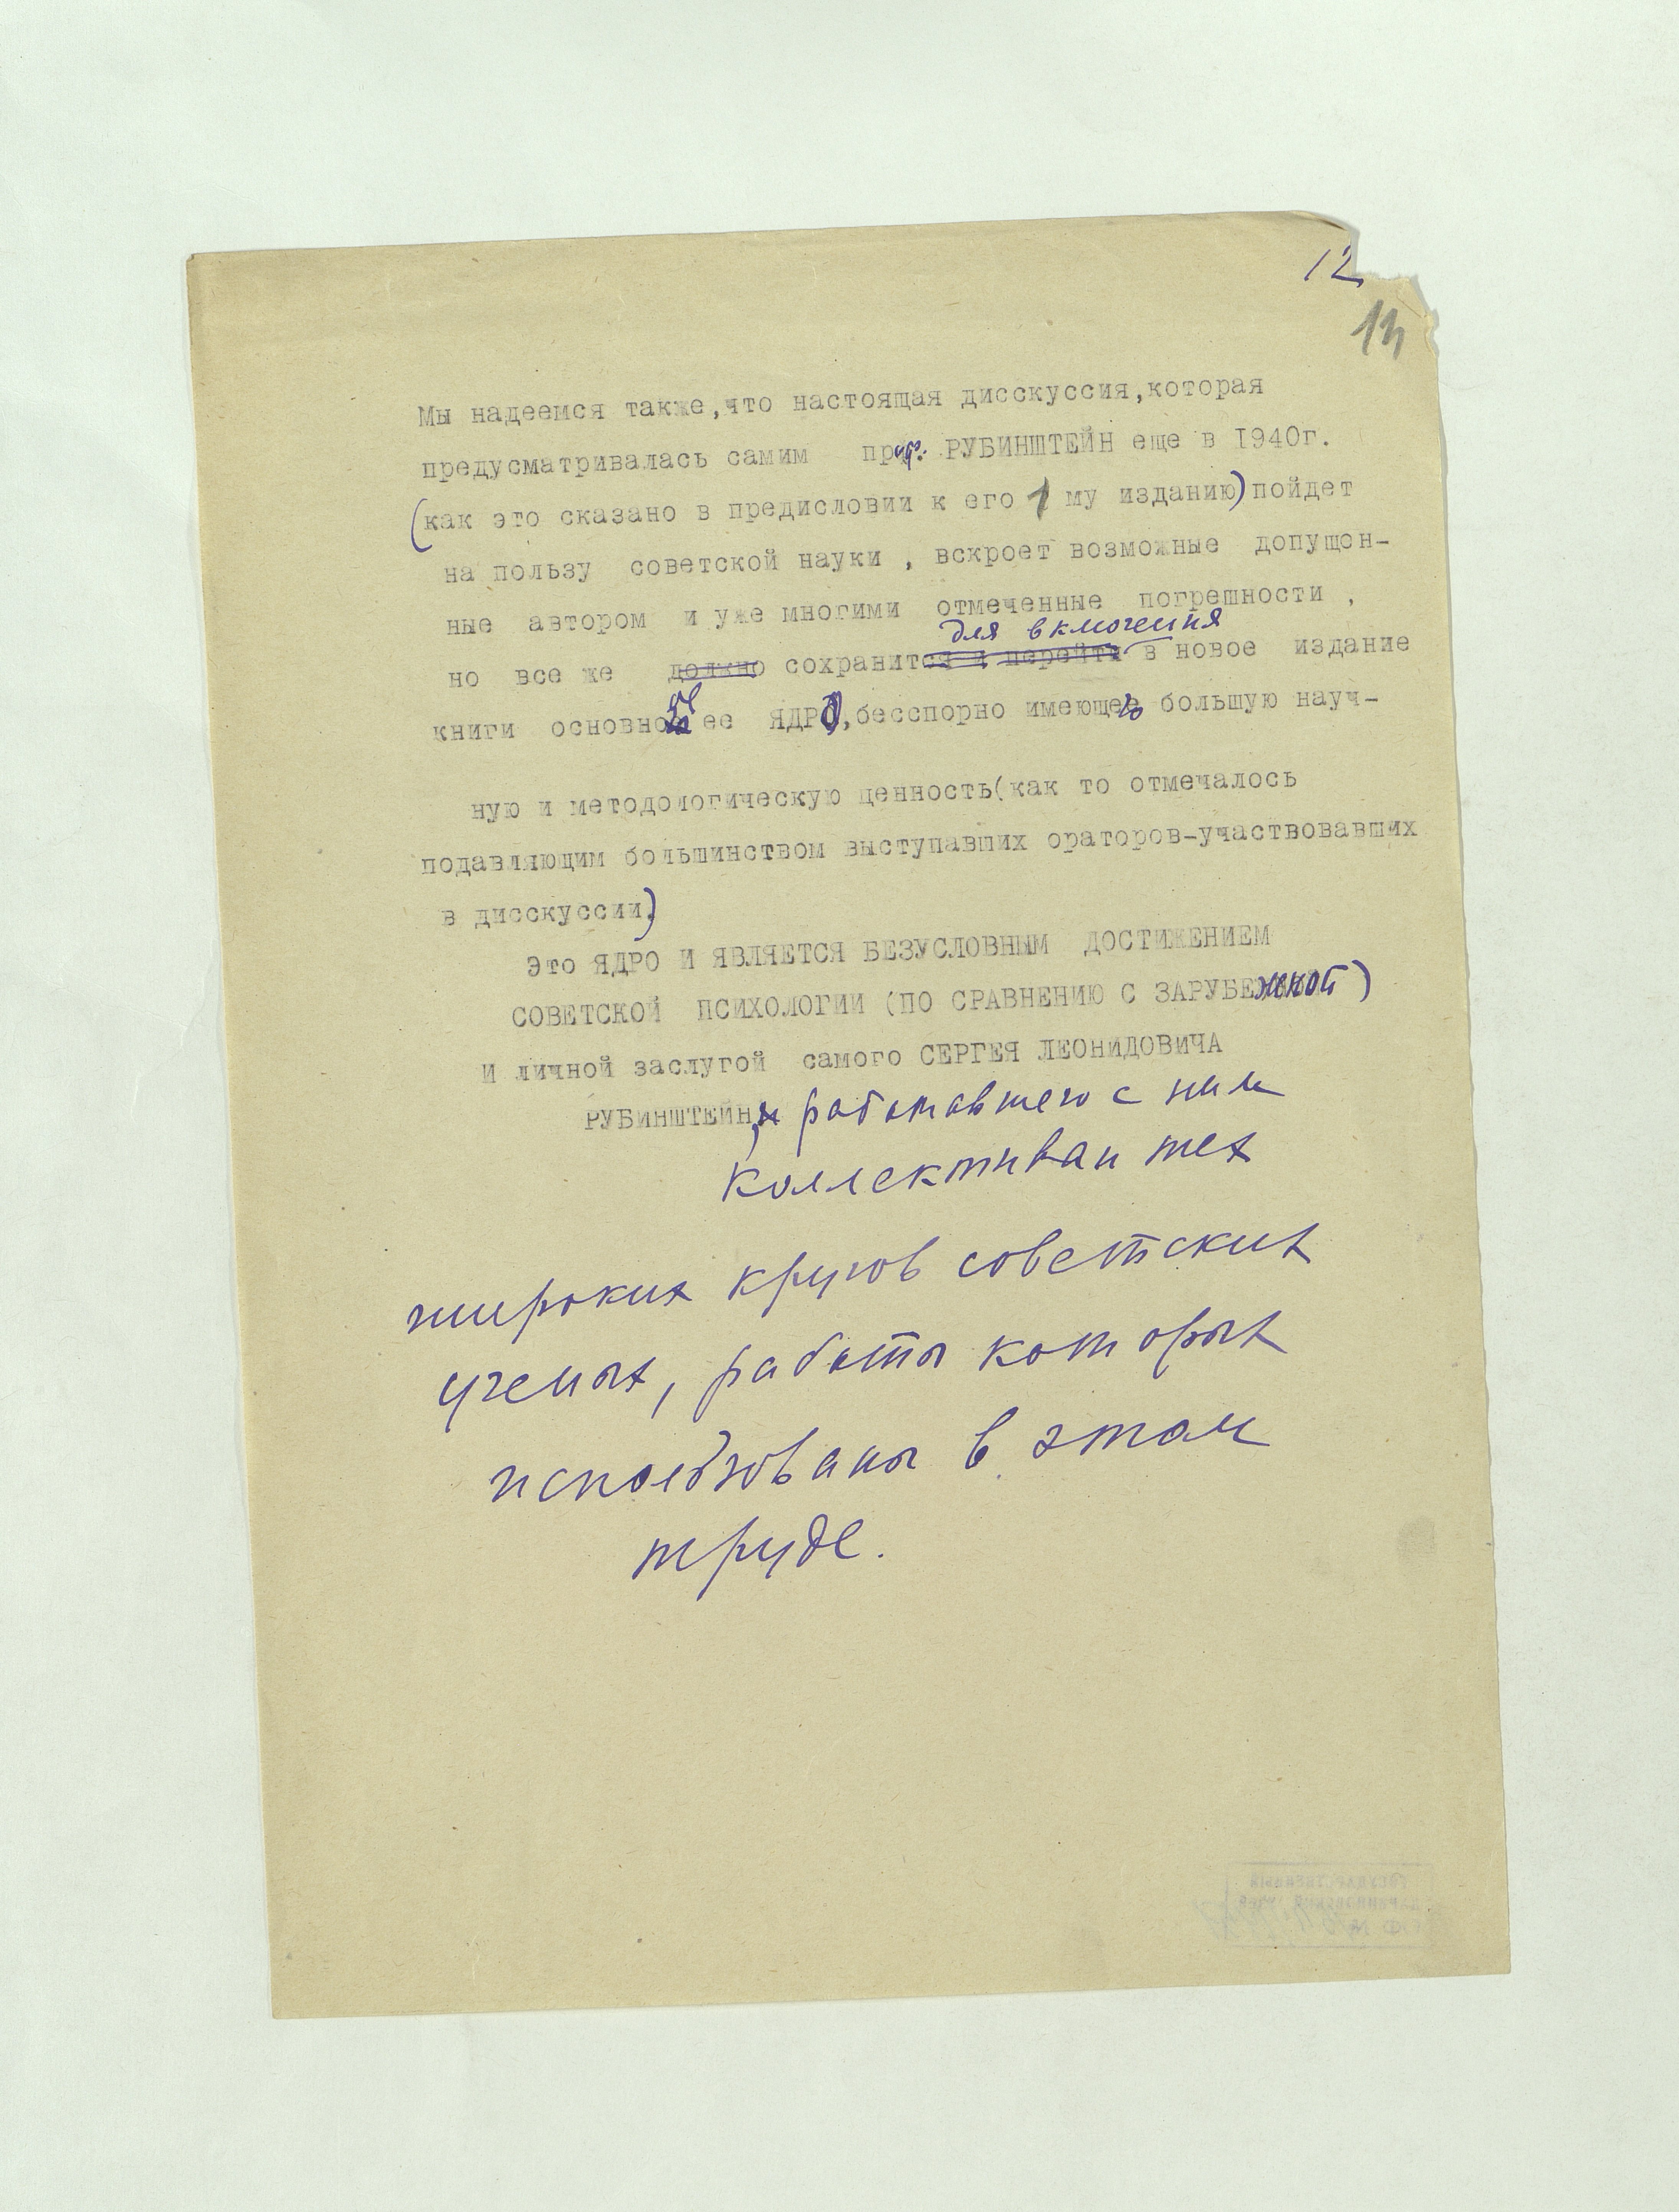 12
Мы надеемся также,что настоящая дисскуссия,которая
предусматривалась самим проф. РУБИНШТЕЙН еще в 1940г.
(как это сказано в предисловии к его 1 му изданию) пойдет
на пользу советской науки , вскроет возможные допущен-
ные автором и уже многими отмеченные погрешности ,
для включения
но все же должно сохранится и перейти в новое издание
книги основное ее ЯДРО,бесспорно имеющее большую науч-
ную и методологическую ценность(как то отмечалось
подавляющим большинством выступавших ораторов-участвовавших
в дисскуссии)
Это ЯДРО И ЯВЛЯЕТСЯ БЕЗУСЛОВНЫМ ДОСТИЖЕНИЕМ
СОВЕТСКОЙ ПСИХОЛОГИИ (ПО СРАВНЕНИЮ С ЗАРУБЕжной)
И личной заслугой самого СЕРГЕЯ ЛЕОНИДОВИЧА
РУБИНШТЕЙН, работавшего с ним
коллектива и тех
широких кругов советских
ученых, работы которых
использованы в этом
труде.